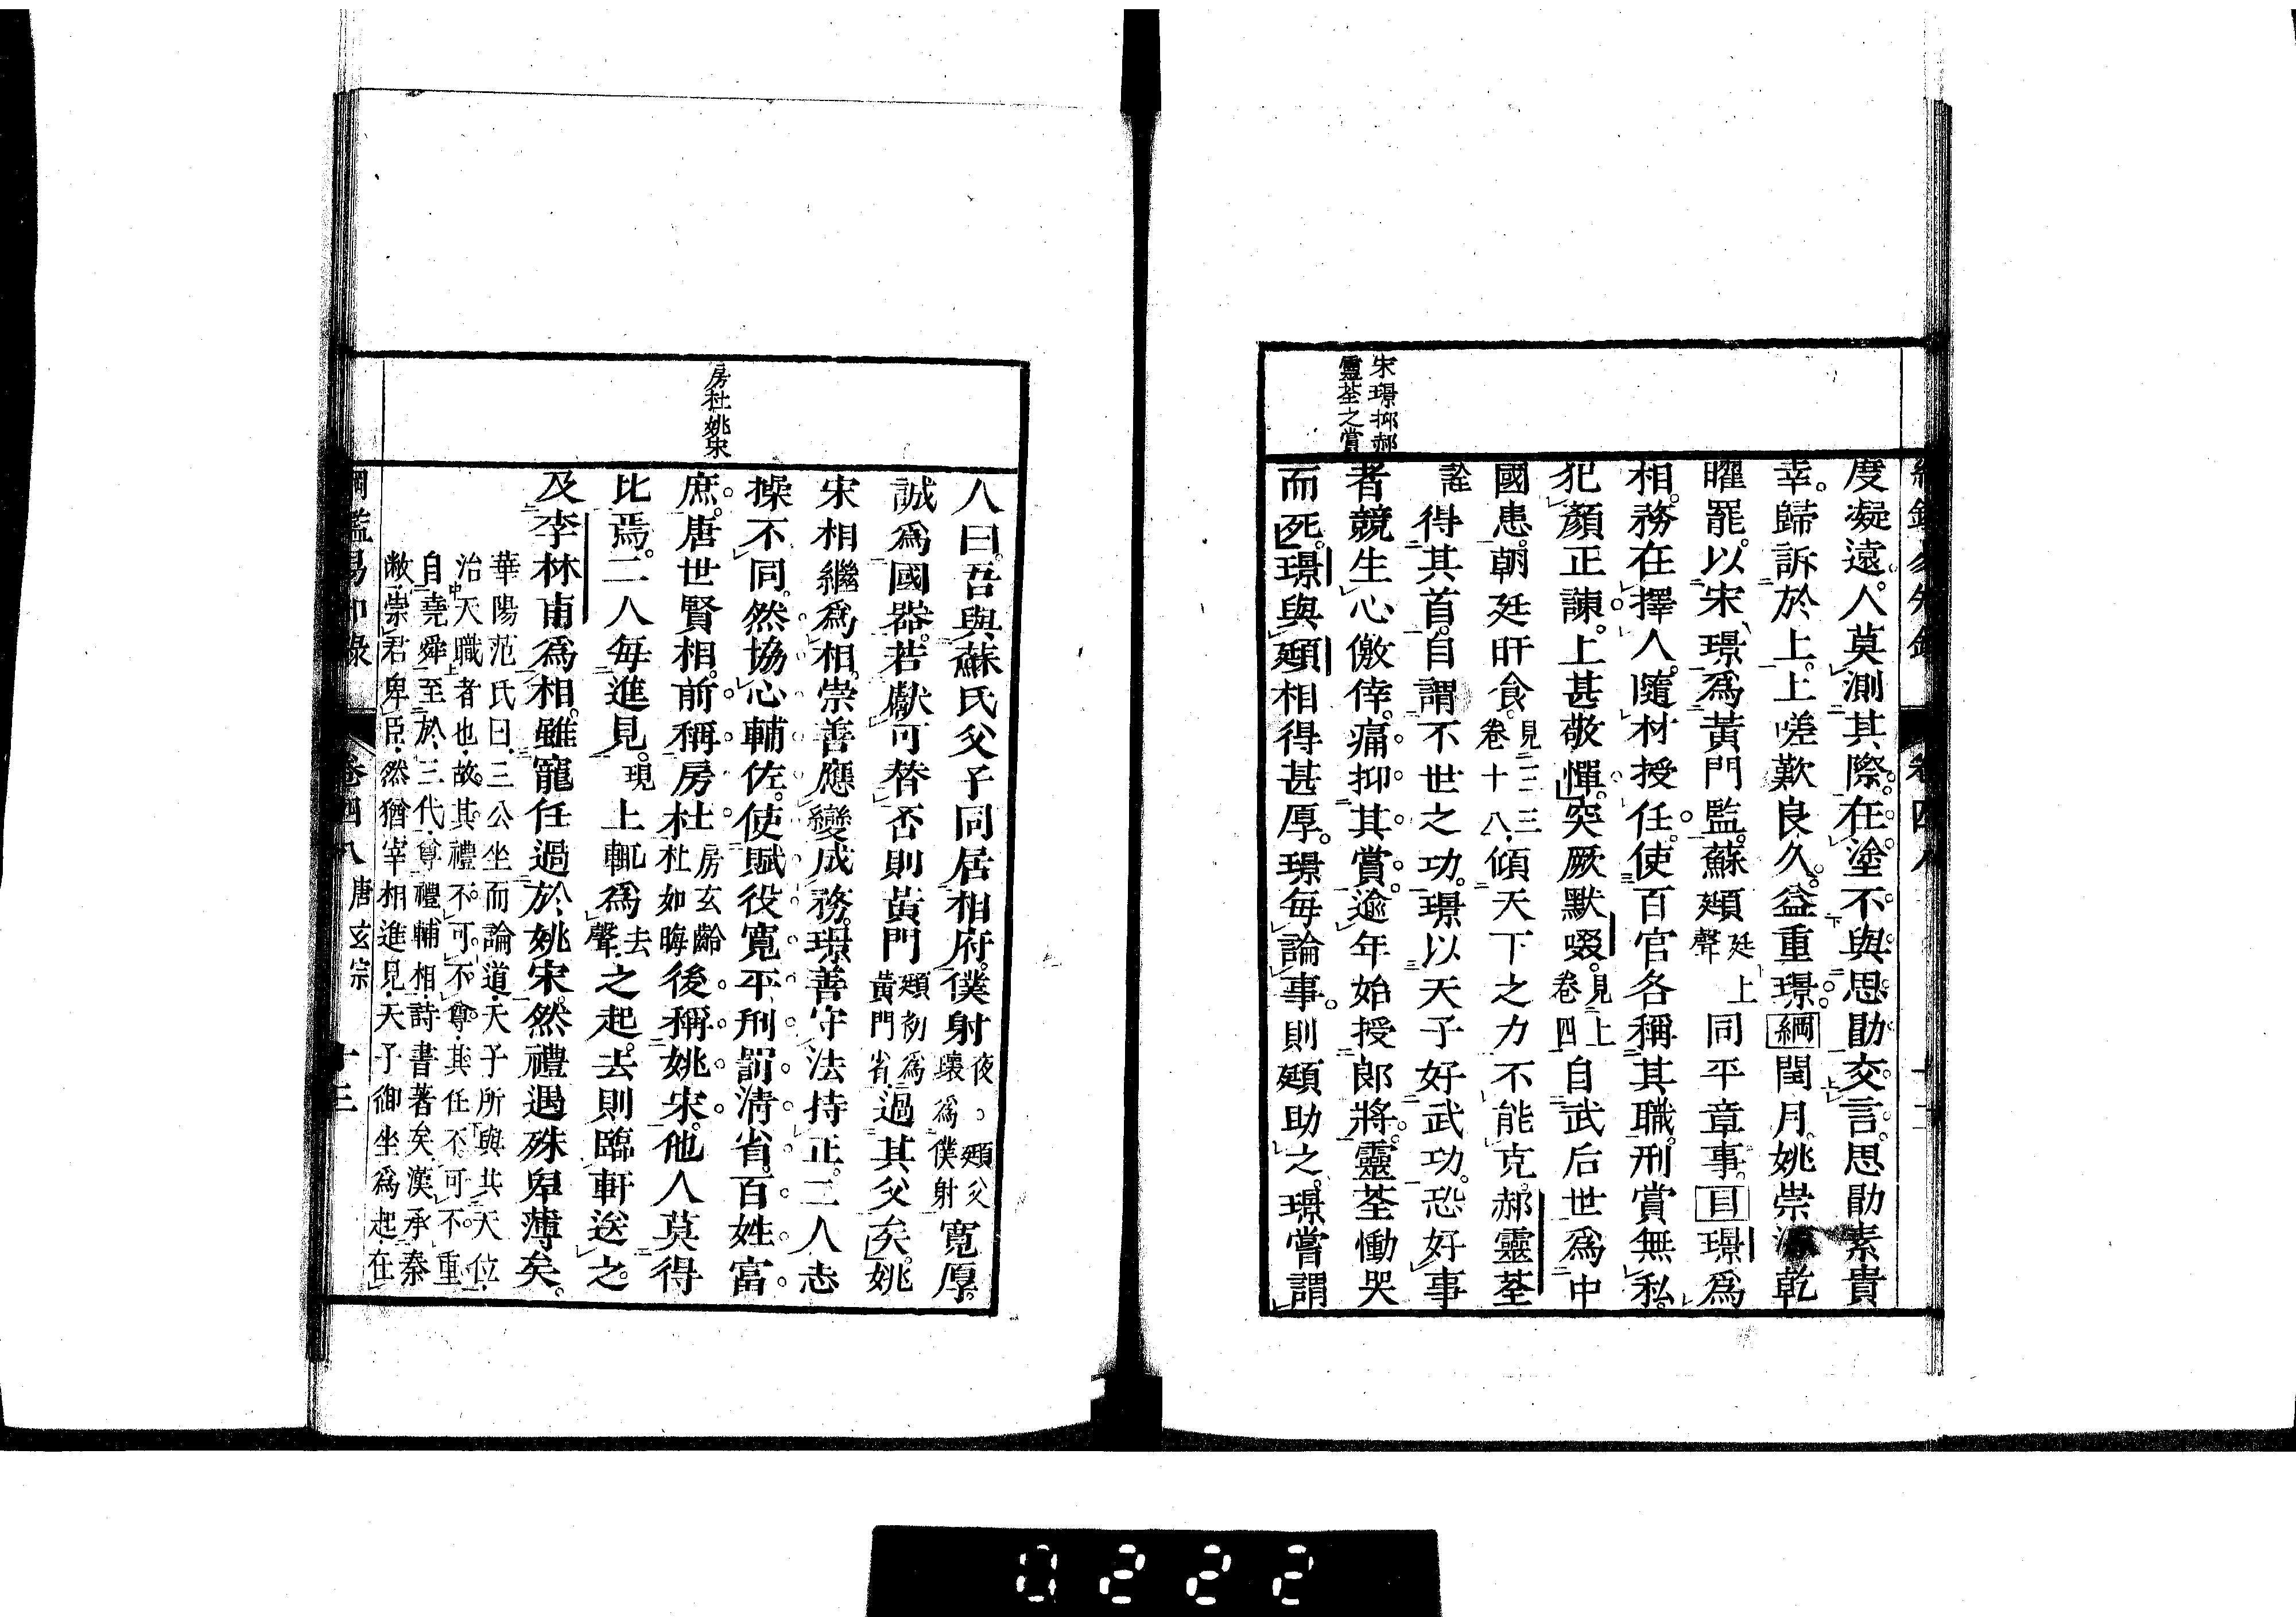 宋璟抑郝
靈荃之賞
度凝遠。人莫測其際。在塗不與思勖交言。思勖素貴
幸。歸訴於上。上嗟歎良久。益重璟。綱閏月。姚崇源乾
曜罷。以宋璟爲黃門監。蘇頲廷上聲同平章事。目璟爲
相。務在擇人。隨材授任。使百官各稱其職。刑賞無私。
犯顏正諫。上甚敬憚。突厥默啜。見上卷四自武后世爲中
國患。朝廷旰食。見二三卷十八傾天下之力不能克。郝靈荃
詮得其首。自謂不世之功。璟以天子好武功。恐好事
者競生心徼倖。痛抑其賞。逾年始授郎將。靈荃慟哭
而死。璟與頲相得甚厚。璟每論事。則頲助之。璟嘗謂
房杜姚宋
人曰。吾與蘇氏父子同居相府。僕射夜、頲父瓌爲僕射寬厚。
誠爲國器。若獻可替否。則黃門頲初爲黃門省過其父矣。姚
宋相繼爲相。崇善應變成務。璟善守法持正。二人志
操不同。然協心輔佐。使賦役寬平。刑罰清省。百姓富
庶。唐世賢相。前稱房杜房玄齡杜如晦後稱姚宋。他人莫得
比焉。二人每進見。現上輒爲去聲之起。去則臨軒送之。
及李林甫爲相。雖寵任過於姚宋。然禮遇殊卑薄矣。
華陽范氏曰。三公坐而論道。天子所與共天位。
治天職者也。故其禮不可不尊。其任不可不重。
自堯舜至於三代。尊禮輔相。詩書著矣。漢承秦
敝。崇君卑臣。然猶宰相進見。天子御坐爲起。在
綱鑑易知錄 卷四八 唐玄宗 十三